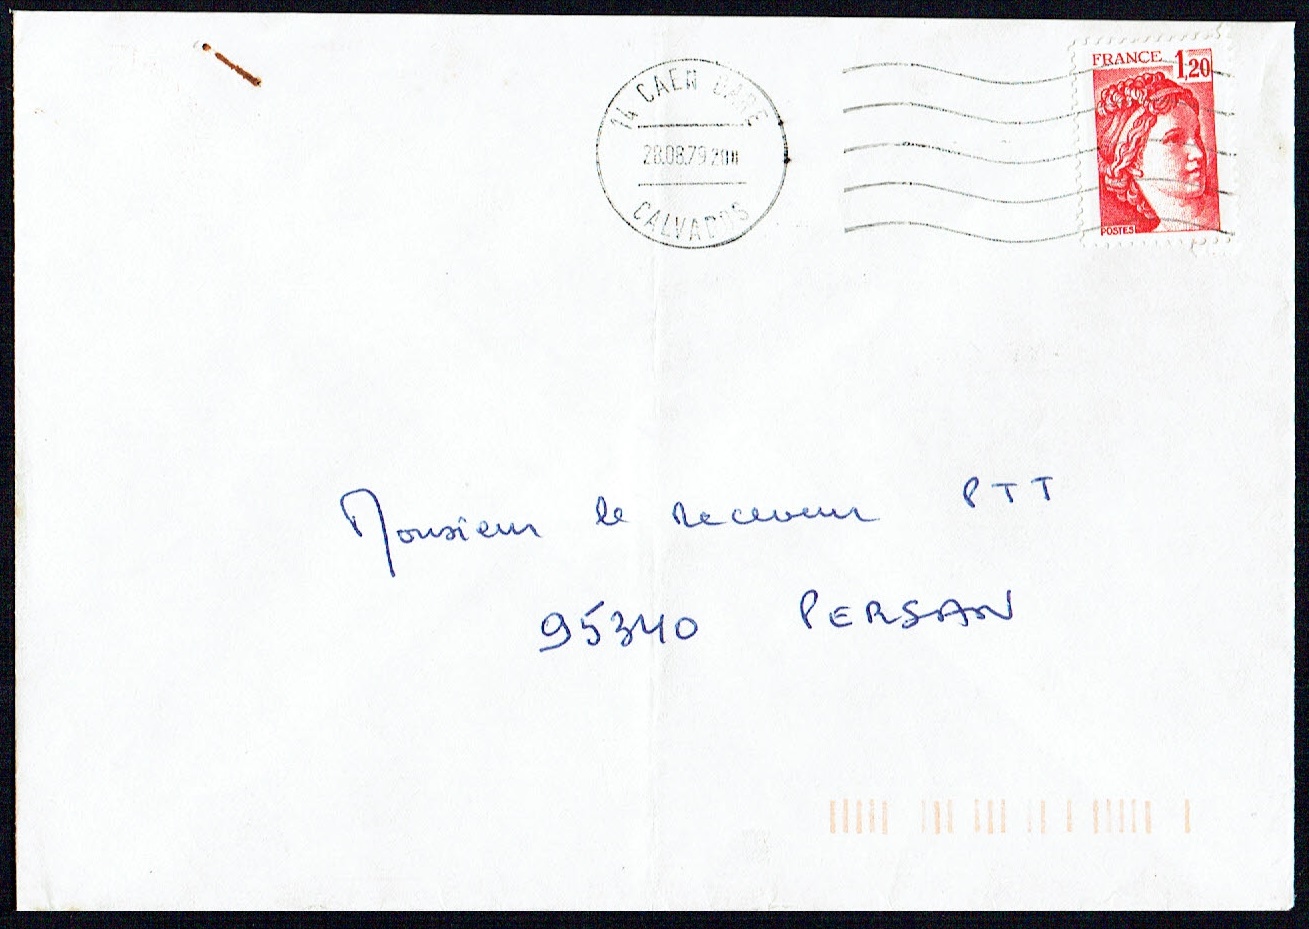 14 CAEN GARE
28.08.79 20H
CALVADOS
FRANCE 1,20
POSTES
Monsieur le receveur PTT
95340 PERSAN